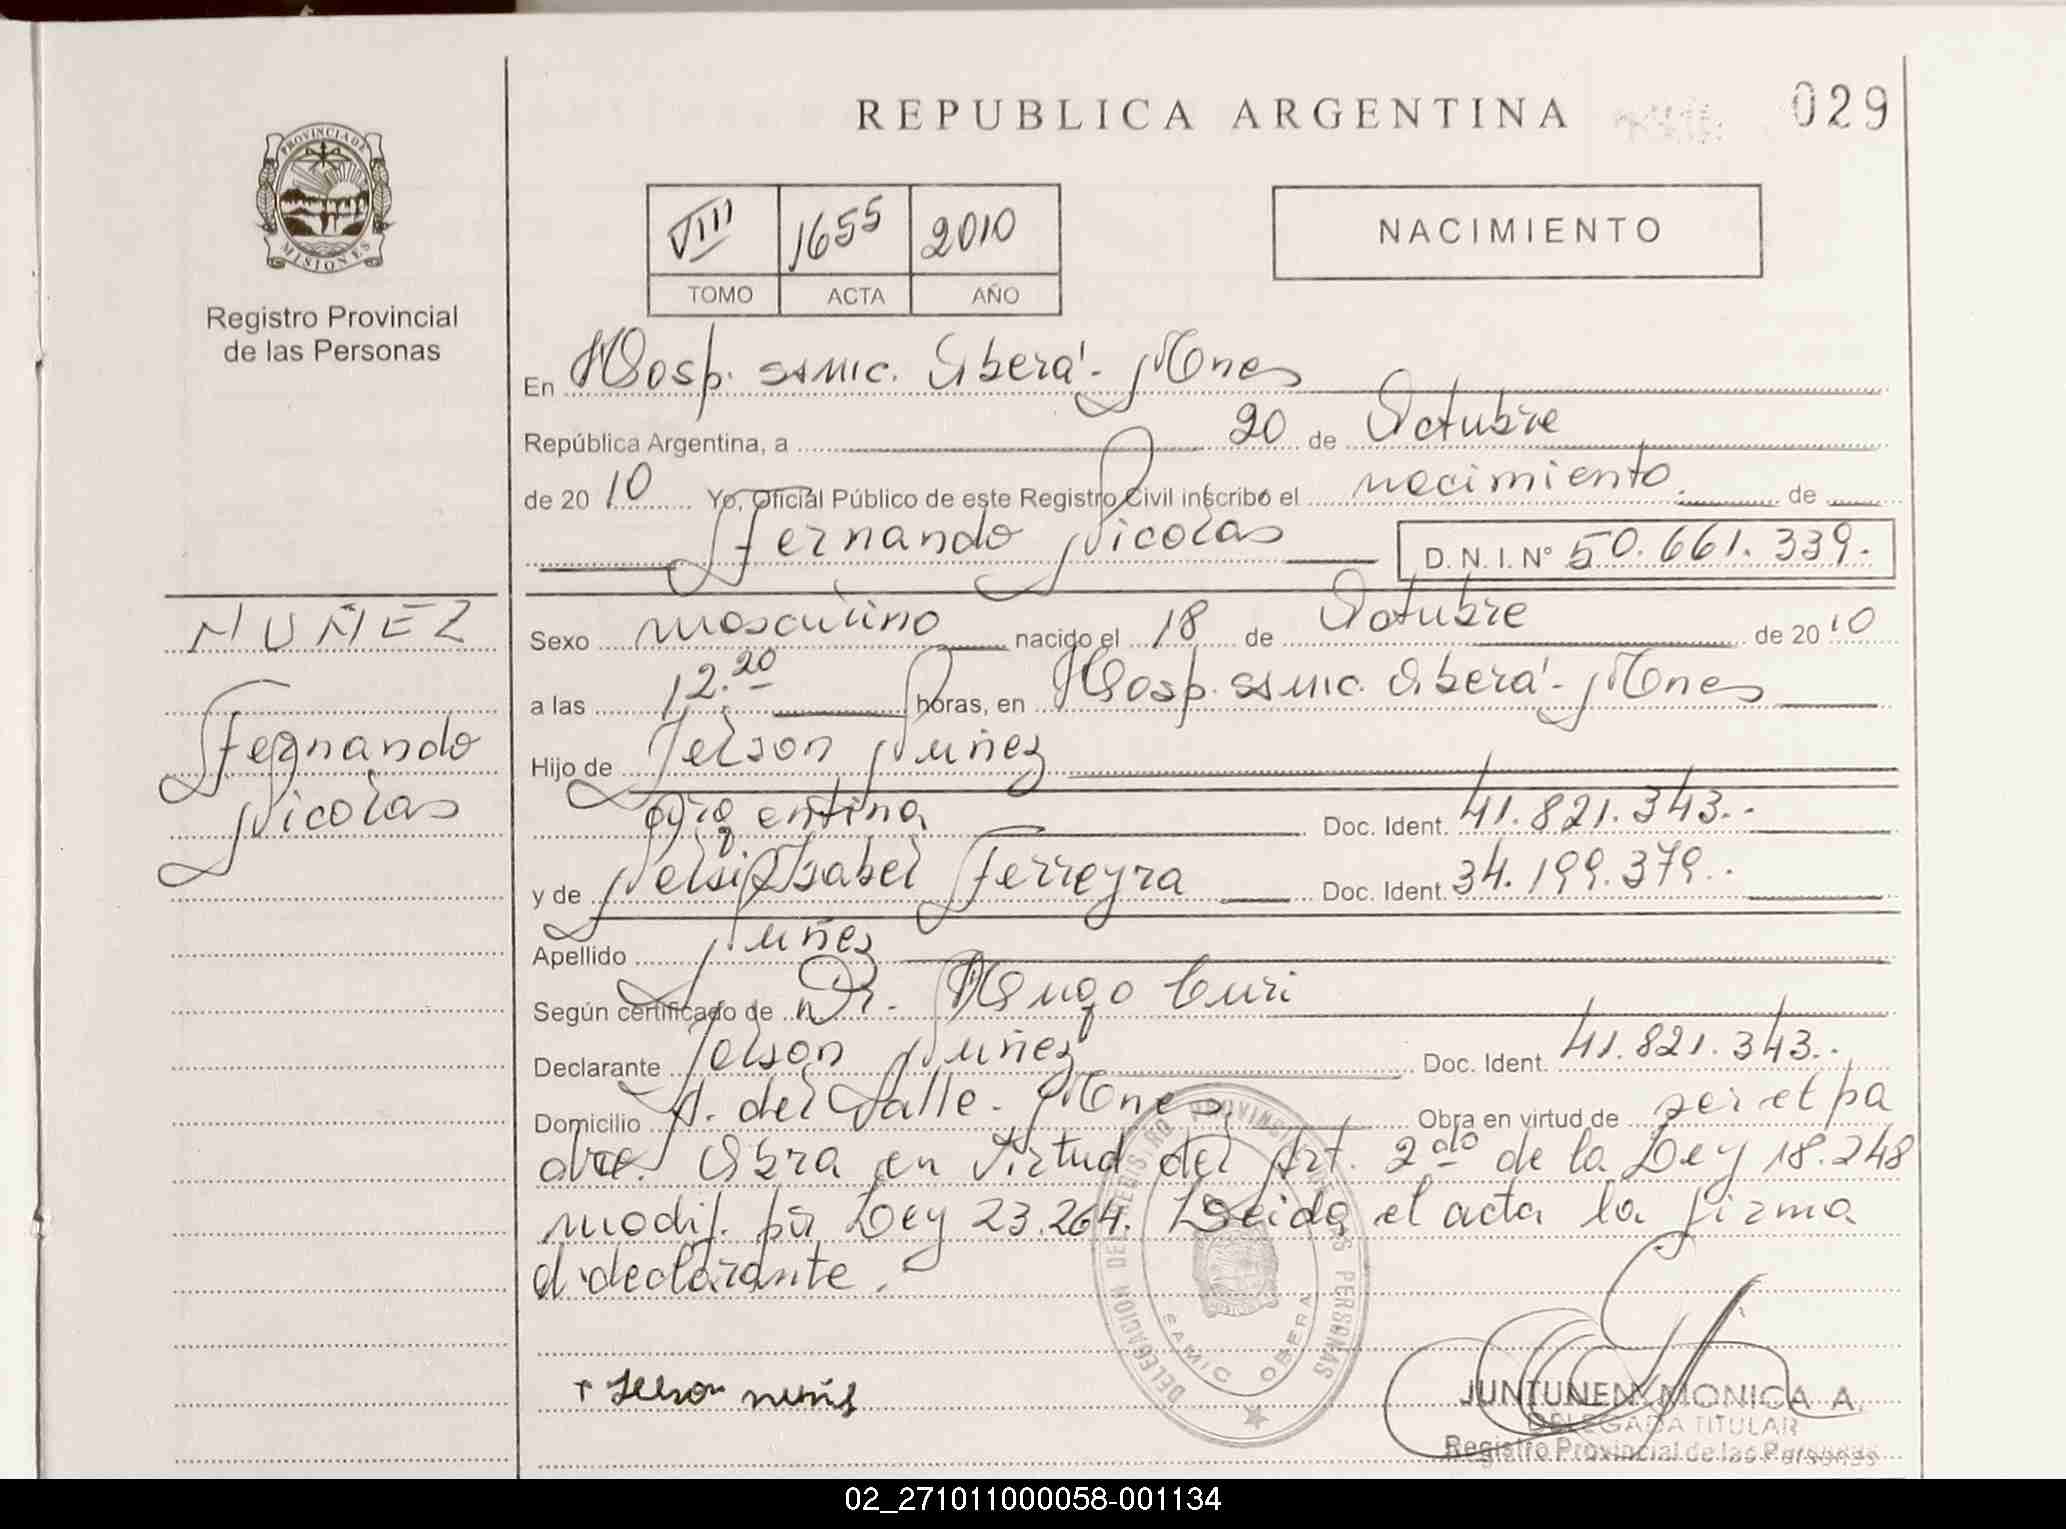 REPUBLICA ARGENTINA
029
PROVINCIA DE
MISIONES
Registro Provincial
de las Personas
VIII 1655 2010
TOMO ACTA AÑO
NACIMIENTO
En Hosp. samic. Oberá - Mnes
República Argentina, a 20 de Octubre
de 2010 Yo, Oficial Público de este Registro Civil inscribo el nacimiento. de
Fernando Nicolas D. N. I. N° 50.661.339.
NUÑEZ
Fernando
Nicolas
Sexo masculino nacido el 18 de Octubre de 2010
a las 12.20 horas, en Hosp. samic. Oberá - Mnes
Hijo de Jelson Nuñez
argentina Doc. Ident. 41.821.343.-
y de Isabel Ferreyra Doc. Ident. 34.199.379.-
Apellido Nuñez
Según certificado de Dr. Hugo Curi
Declarante Jelson Nuñez Doc. Ident. 41.821.343.-
Domicilio A. del Valle - Mnes Obra en virtud de ser el pa
dre. Obra en virtud del Art. 2do de la Ley 18.248
modif. por Ley 23.264. Leida el acta la firma
el declarante.
DELEGACION DEL REGISTRO PROVINCIAL DE LAS PERSONAS
SAMIC OBERA
Jelson nuñez
JUNTUNEN MONICA A.
DELEGADA TITULAR
Registro Provincial de las Personas
02_271011000058-001134